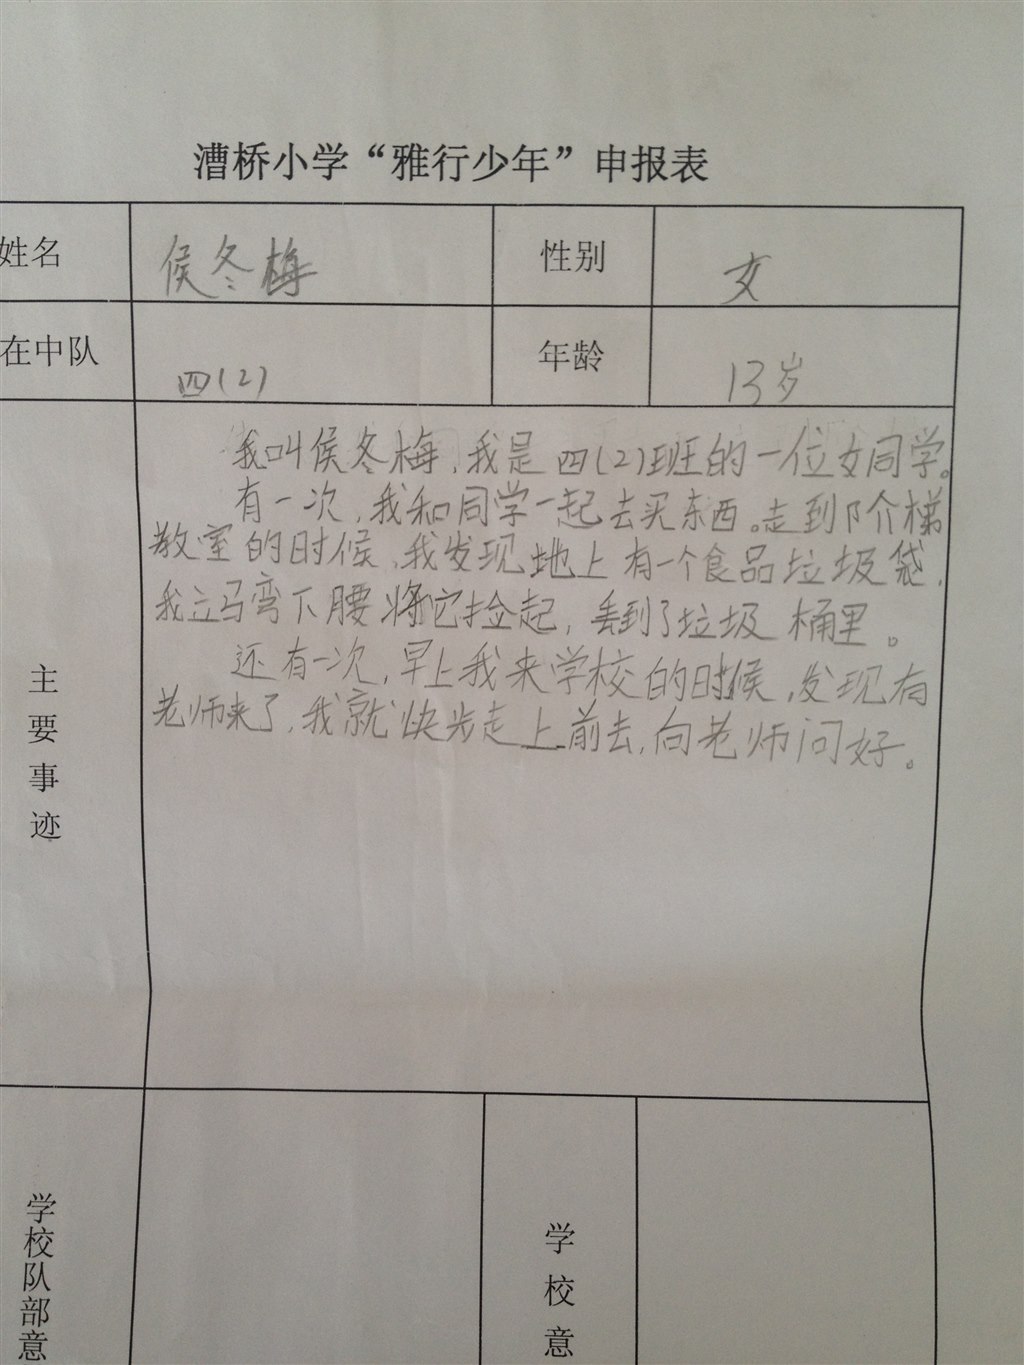 漕桥小学“雅行少年”申报表
姓名 侯冬梅 性别 女
在中队 四(2) 年龄 13岁
主要事迹
我叫侯冬梅,我是四(2)班的一位女同学。
有一次,我和同学一起去买东西。走到阶梯
教室的时候,我发现地上有一个食品垃圾袋,
我立马弯下腰将它捡起,丢到了垃圾桶里。
还有一次,早上我来学校的时候,发现有
老师来了,我就快步走上前去,向老师问好。
学校队部意
学校意